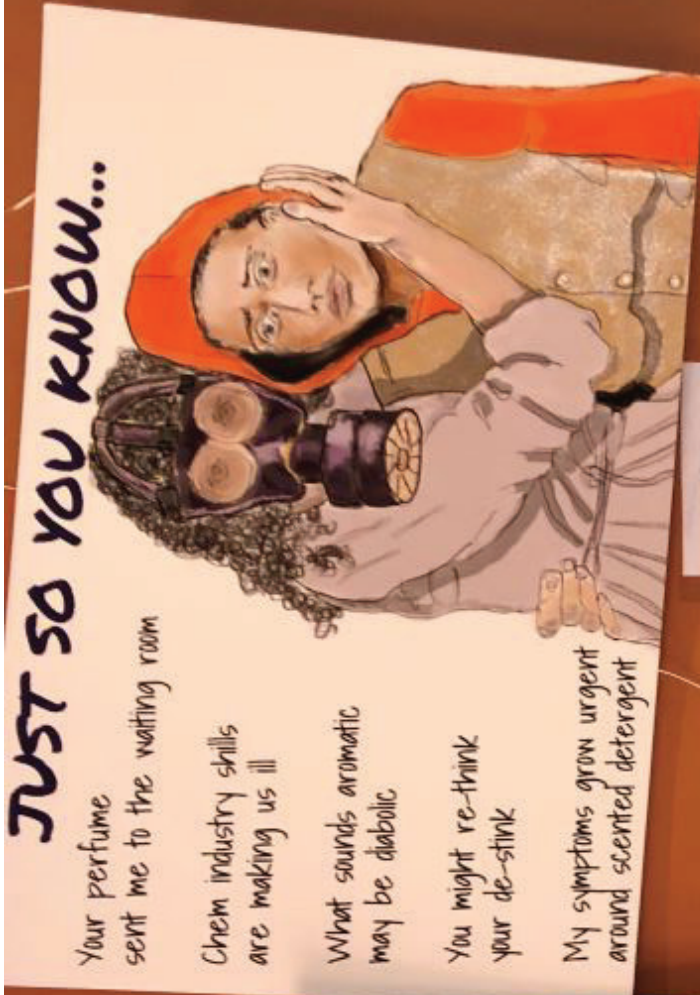 JUST SO YOU KNOW...
Your perfume
sent me to the waiting room
Chem industry shills
are making us ill
What sounds aromatic
may be diabolic
You might re-think
your de-stink
My symptoms grow urgent
around scented detergent